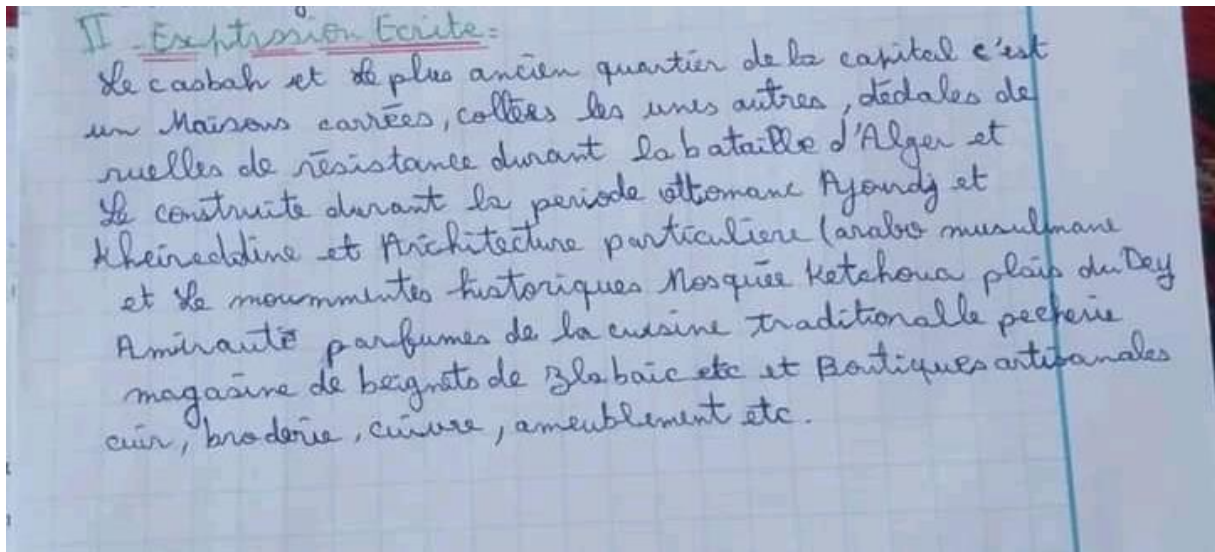 II - Exptrssion Ecrite:
Le casbah et le plus ancien quartier de la capital c'est
un Maisons carrées, collées les unes autres, dédales de
ruelles de résistance durant la bataille d'Alger et
Le construite durant la periode ottomane Ajoundj et
kheireddine et Architecture particuliere (arabo musulmane
et Le moummentes historiques Mosquée ketchoua plais du Dey
Amirauté parfumes de la cuisine traditionalle pecherie
magasine de beignets de Zlabaic etc et Boutiques artisanales
cuir, broderie, cuivre, ameublement etc.